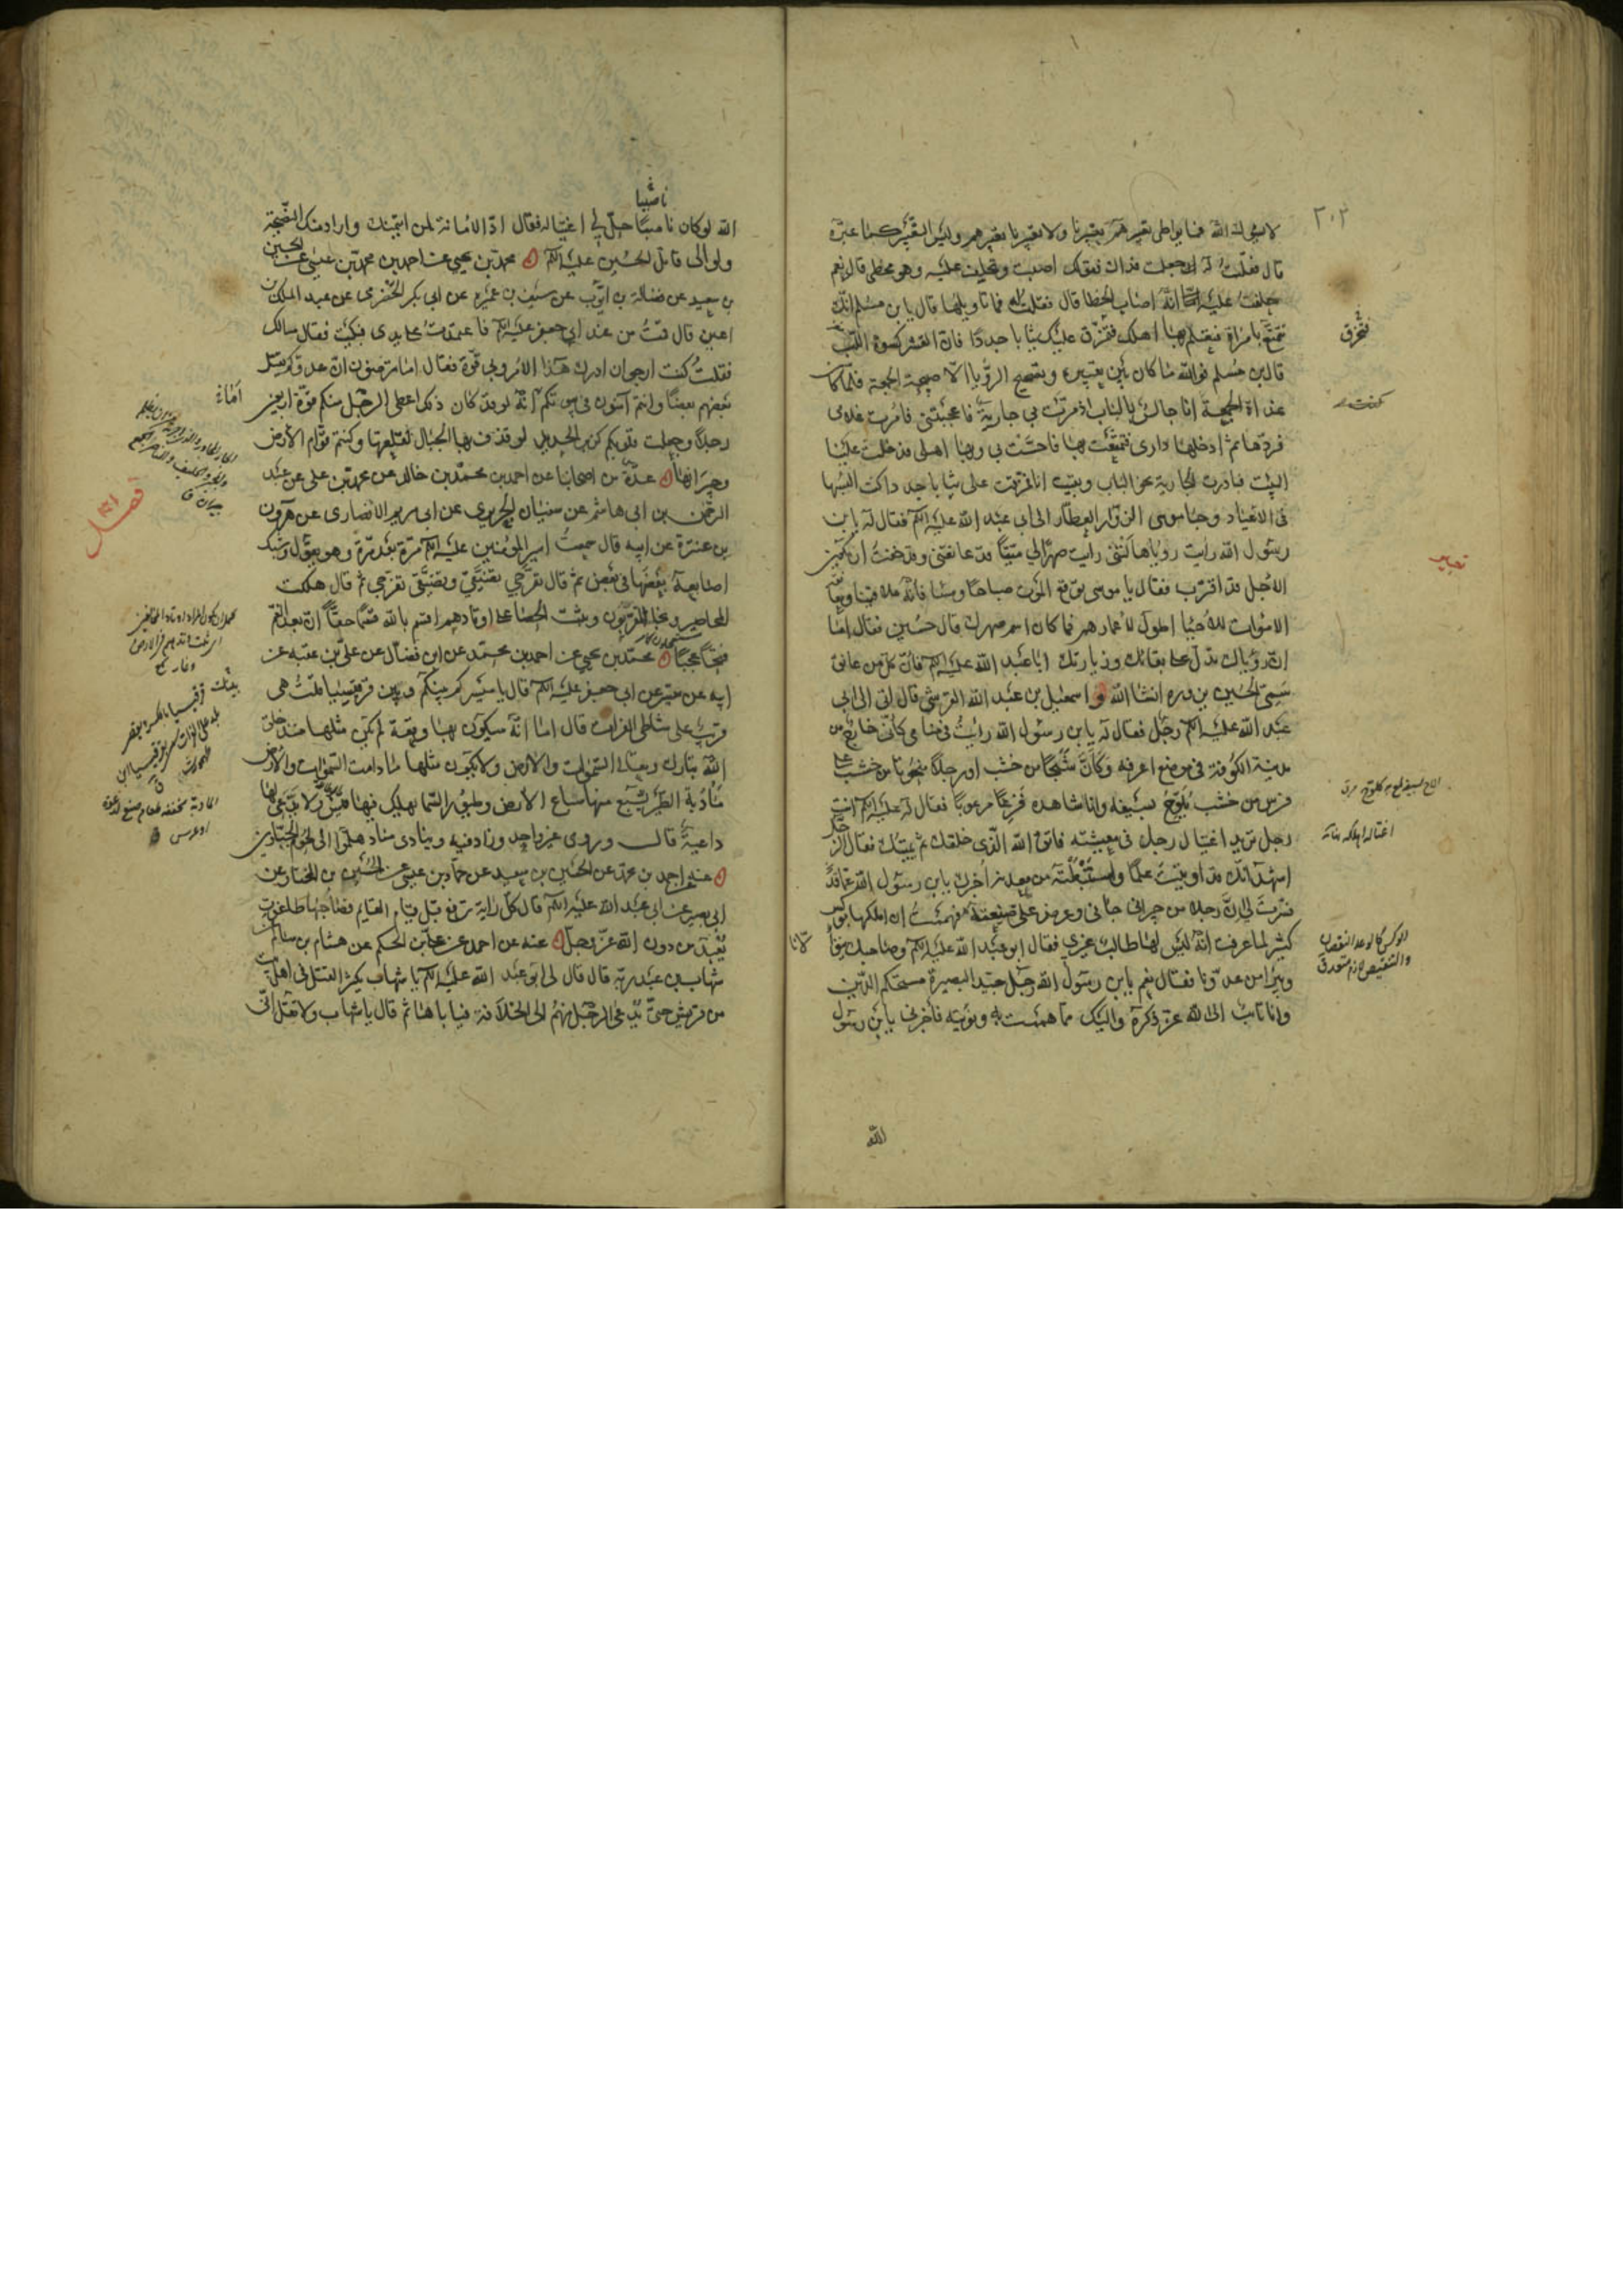 ٢٠٢
لا يسوك الله فما يواطى تعبيرهم تعبيرنا ولا تعبيرنا تعبيرهم وليس التعبير كما عبّره
قال فقلت له جعلت فداك فقولك اصبت وتحلف عليه وهو مخطى قال نعم
حلفت عليه انّه اصاب الخطا قال فقلت له فما تاويلها قال يا بن مسلم انّك
تتمتّع بامراة فتعلم بها اهلك فتمزّق عليك ثيابا جددا فان القشر كسوة اللبّ
قال بن مسلم فوالله ما كان بين تعبيره وتصحيح الرؤيا الا صبيحة الجمعة فلمّا كان
غداة الجمعة انا جالس بالباب اذ مرّت بي جارية فاعجبتنى فامرت غلامى
فردّها ثم ادخلها دارى فتمتّعت بها فاحسّت بي وبها اهلى فدخلت علينا
البيت فبادرت الجارية نحو الباب وبقيت انا فمزّقت على ثيابا جددا كنت البسها
فى الاعياد وجا موسى الزوّار العطّار الى ابى عبد الله عليه السلم فقال له يا بن
رسول الله رايت رؤيا هالتنى رايت صهرا لي ميتا قد عانقنى وقد خفت ان يكون
الاجل قد اقترب فقال يا موسى توقّع الموت صباحا ومسا فانّه ملاقينا ومعانقة
الاموات للاحيا اطول لاعمارهم فما كان اسم صهرك قال حسين فقال اما
انّ رؤياك تدلّ على بقائك وزيارتك ابا عبد الله عليه السلم فانّ كلّ من عانق
سمىّ الحسين يزوره انشا الله اسمعيل بن عبد الله القرشى قال اتى الى ابى
عبد الله عليه السلم رجل فقال له يا بن رسول الله رايت فى منامى كانّى خارج من
مدينة الكوفة فى موضع اعرفه وكانّ شبحا من خشب او رجلا منحوتا من خشب على
فرس من خشب يلوّح بسيفه وانا شاهده فزعا مرعوبا فقال له عليه السلم انت
رجل تريد اغتيال رجل فى معيشته فاتق الله الّذى خلقك ثم يميتك فقال الرجل
اشهد انّك قد اوتيت علما واستنبطته من معدنه اخبرك يا بن رسول الله عمّا قد
فسّرت لى انّ رجلا من جيرانى جائنى وعرض علىّ ضيعته فهممت ان املكها بوكس
كثير لما عرفت انّه ليس لها طالب غيرى فقال ابو عبد الله عليه السلم وصاحبك يتولانا
ويبرا من عدوّنا فقال نعم يا بن رسول الله رجل جيّد البصيرة مستحكم الدّين
وانا تائب الى الله عزّ ذكره واليك ممّا هممت به ونويته فاخبرنى يا بن رسول
الله
فتخرق
تعبير
اغتاله اهلكه
الوكس كالوعد النقصان
والتنقيص لازم متعدق
ناصبيا
الله لو كان ناصبيا حلّ لي اغتياله فقال ادّ الامانة لمن ائتمنك واراد منك النصيحة
ولو الى قاتل الحسين عليه السلم محمد بن يحيى عن احمد بن محمد بن عيسى عن الحسين
بن سعيد عن فضالة بن ايّوب عن سيف بن عميرة عن ابى بكر الحضرمى عن عبد الملك بن
اعين قال قمت من عند ابي جعفر عليه السلم فاعتمدت على يدى فبكيت فقال مالك
فقلت كنت ارجو ان ادرك هذا الامر وبي قوّة فقال اما ترضون انّ عدوّكم يقتل
بعضهم بعضا وانتم آمنون فى بيوتكم انّه لو قد كان ذلك اعطى الرجل منكم قوّة اربعين
رجلا وجعلت قلوبكم كزبر الحديد لو قذف بها الجبال لقلعتها وكنتم قوّام الارض
وجيرانها عدّة من اصحابنا عن احمد بن محمد بن خالد عن محمد بن على عن عبد
الرحمن بن ابى هاشم عن سفيان الجريرى عن ابى مريم الانصارى عن هرون
بن عنترة عن ابيه قال سمعت امير المؤمنين عليه السلم مرّة بعد مرّة وهو يقول وشبك
اصابعه بعضها فى بعض ثم قال تفرّجى تضيّقى وتضيّقى تفرّجى ثم قال هلكت
المحاضير ونجا المقرّبون وثبت الحصا على اوتادهم اقسم بالله قسما حقّا انّ بعد الغم
فتحا عجبا محمّد بن يحيى عن احمد بن محمّد عن ابن فضال عن علىّ بن عقبة عن
ابيه عن ميسر عن ابى جعفر عليه السلم قال يا ميسر كم بينكم وبين قرقيسيا قلت هى
قريب على شاطى الفرات قال اما انّه سيكون بها وقعة لم يكن مثلها منذ خلق
الله تبارك وتعالى السموات والارض ولا يكون مثلها ما دامت السموات والارض
مادبة الطير تشبع منها سباع الارض وطيور السما يهلك فيها قيس ولا يدعى لها
داعية قال وروى غير واحد وزاد فيه وينادى مناد هلمّوا الى لحوم الجبّارين
عنه احمد بن محمد عن الحسين بن سعيد عن حمّاد بن عيسى عن الحسين بن المختار عن
ابى بصير عن ابى عبد الله عليه السلم قال كلّ راية ترفع قبل قيام القايم فصاحبها طاغوت
يعبد من دون الله عزّ وجلّ عنه عن احمد عن على بن الحكم عن هشام بن سالم عن
شهاب بن عبد ربّه قال قال لى ابو عبد الله عليه السلم يا شهاب يكثر القتل فى اهل بيت
من قريش حتّى يدعى الرجل منهم الى الخلافة فياباها ثم قال يا شهاب ولا تقل انّى
امّاء